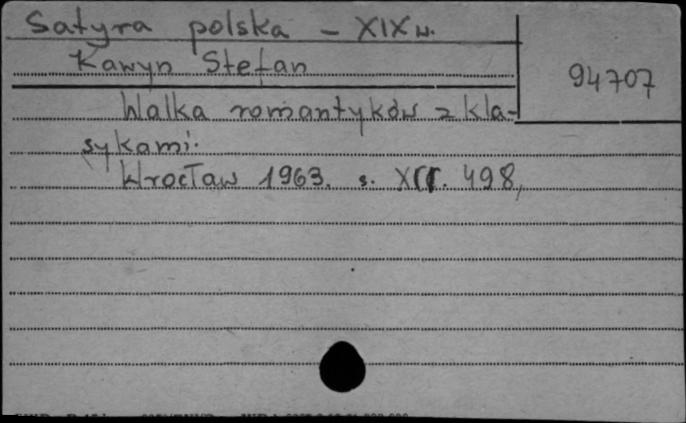 Satyra polska – XIX w.
Kawyn Stefan
94707
Walka romantyków z kla-
sykami.
Wrocław 1963. s. 498,